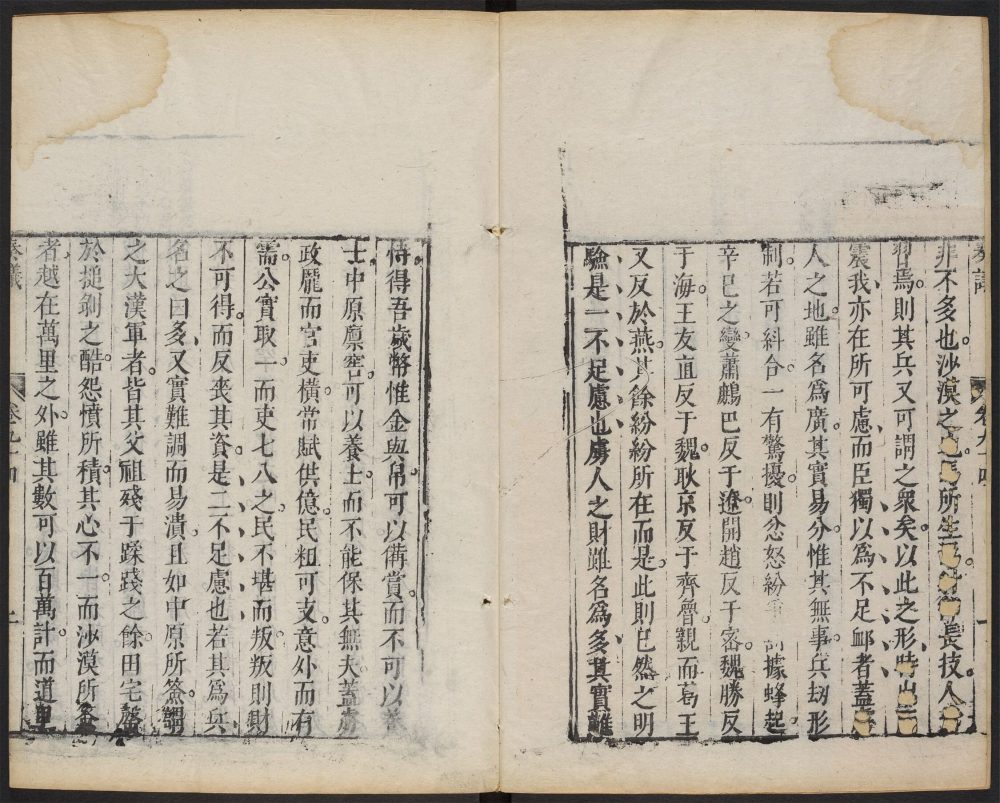 非不多也沙漠之所生長技人
焉則其兵又可謂之衆矣以此之形時出而
震我亦在所可慮而臣獨以爲不足卹者蓋
人之地雖名爲廣其實易分惟其無事兵刼形
制若可糾合一有驚擾則忿怒紛割據蜂起
辛巳之變蕭鷓巴反于遼開趙反于密魏勝反
于海王友直反于魏耿京反于齊魯親而葛王
又反於燕其餘紛紛所在而是此則已然之明
驗是一不足慮也虜人之財雖名爲多其實難
恃得吾歲幣惟金與帛可以備賞而不可以養
士中原廪窖可以養士而不能保其無失蓋虜
政龐而官吏橫常賦供億民粗可支意外而有
需公實取一而吏七八之民不堪而叛叛則財
不可得而反喪其資是二不足慮也若其爲兵
名之曰多又實難調而易潰且如中原所簽謂
之大漢軍者皆其父祖殘于蹂踐之餘田宅罄
於搥剝之酷怨憤所積其心不一而沙漠所簽
者越在萬里之外雖其數可以百萬計而道里
奏議
卷九十四